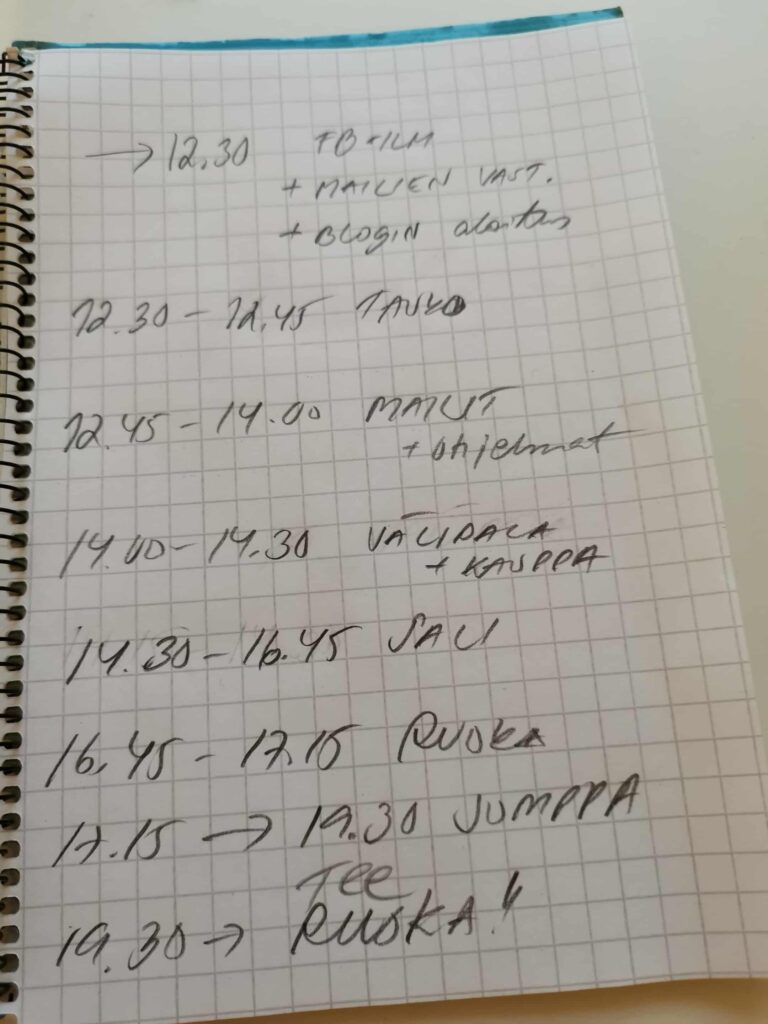 → 12.30 FB-ILM
+ MAILIEN VAST.
+ BLOGIN aloitus
12.30 - 12.45 TAUKO
12.45 - 14.00 MAILIT
+ ohjelmat
14.00 - 14.30 VÄLIPALA
+ KAUPPA
14.30 - 16.45 SALI
16.45 - 17.15 RUOKA
17.15 → 19.30 JUMPPA
TEE
19.30 → RUOKA!!